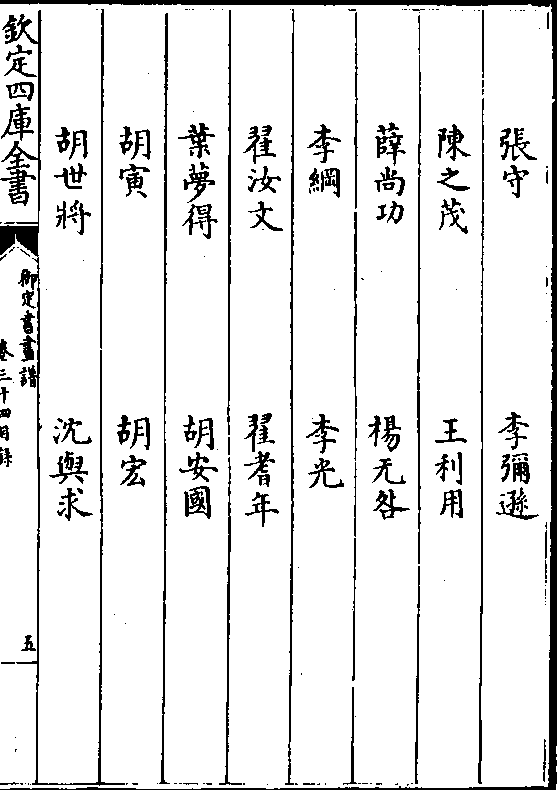 張守 李彌遜
陳之茂 王利用
薛尚功 楊无咎
李綱 李光
翟汝文 翟耆年
葉夢得 胡安國
胡寅 胡宏
胡世將 沈與求
欽定四庫全書
御定書畫譜
卷三十四目錄
五